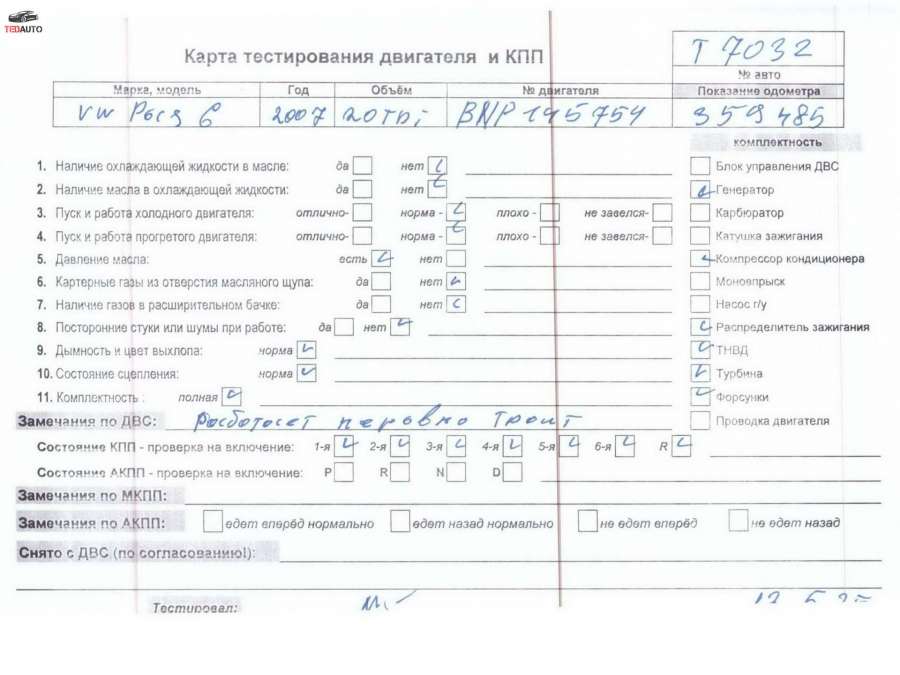 TEDAUTO
Карта тестирования двигателя и КПП
Т 7032
№ авто
Марка, модель Год Объём № двигателя Показание одометра
VW 6 2007 2.0TDi BNP 145754 359 485
комплектность
1. Наличие охлаждающей жидкости в масле: да нет Блок управления ДВС
2. Наличие масла в охлаждающей жидкости: да нет Генератор
3. Пуск и работа холодного двигателя: отлично- норма - плохо - не завелся- Карбюратор
4. Пуск и работа прогретого двигателя: отлично- норма - плохо - не завелся- Катушка зажигания
5. Давление масла: есть нет Компрессор кондиционера
6. Картерные газы из отверстия масляного щупа: да нет Моновпрыск
7. Наличие газов в расширительном бачке: да нет Насос г/у
8. Посторонние стуки или шумы при работе: да нет Распределитель зажигания
9. Дымность и цвет выхлопа: норма ТНВД
10. Состояние сцепления: норма Турбина
11. Комплектность : полная Форсунки
Замечания по ДВС: неровно троит Проводка двигателя
Состояние КПП - проверка на включение: 1-я 2-я 3-я 4-я 5-я 6-я R
Состояние АКПП - проверка на включение: P R N D
Замечания по МКПП:
Замечания по АКПП: едет вперёд нормально едет назад нормально не едет вперёд не едет назад
Снято с ДВС (по согласованию!):
Тестировал: